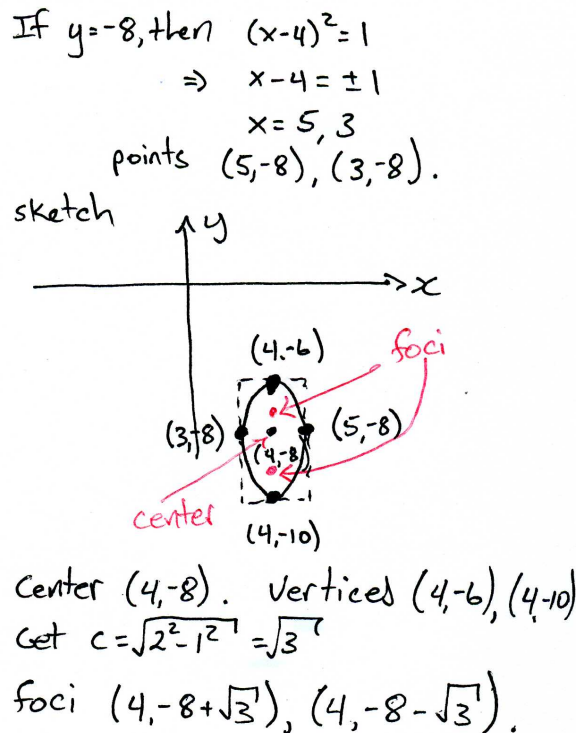 If y=-8, then (x-4)²=1
⇒ x-4=±1
x=5, 3
points (5,-8), (3,-8).
sketch
y
x
(4,-6)
foci
(3,-8)
(5,-8)
(4,-8
center
(4,-10)
Center (4,-8). Vertices (4,-6), (4,-10)
Get c=√2²-1² =√3
foci (4,-8+√3), (4,-8-√3).